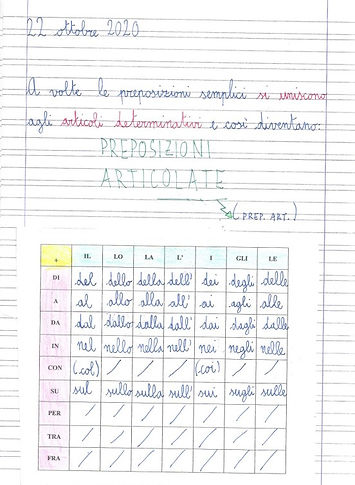 22 ottobre 2020
A volte le preposizioni semplici si uniscono
agli articoli determinativi e così diventano:
PREPOSIZIONI
ARTICOLATE
(PREP. ART.)
+ IL LO LA L' I GLI LE
DI del dello della dell' dei degli delle
A al allo alla all' ai agli alle
DA dal dallo dalla dall' dai dagli dalle
IN nel nello nella nell' nei negli nelle
CON (col) / / / (coi) / /
SU sul sullo sulla sull' sui sugli sulle
PER / / / / / / /
TRA / / / / / / /
FRA / / / / / / /